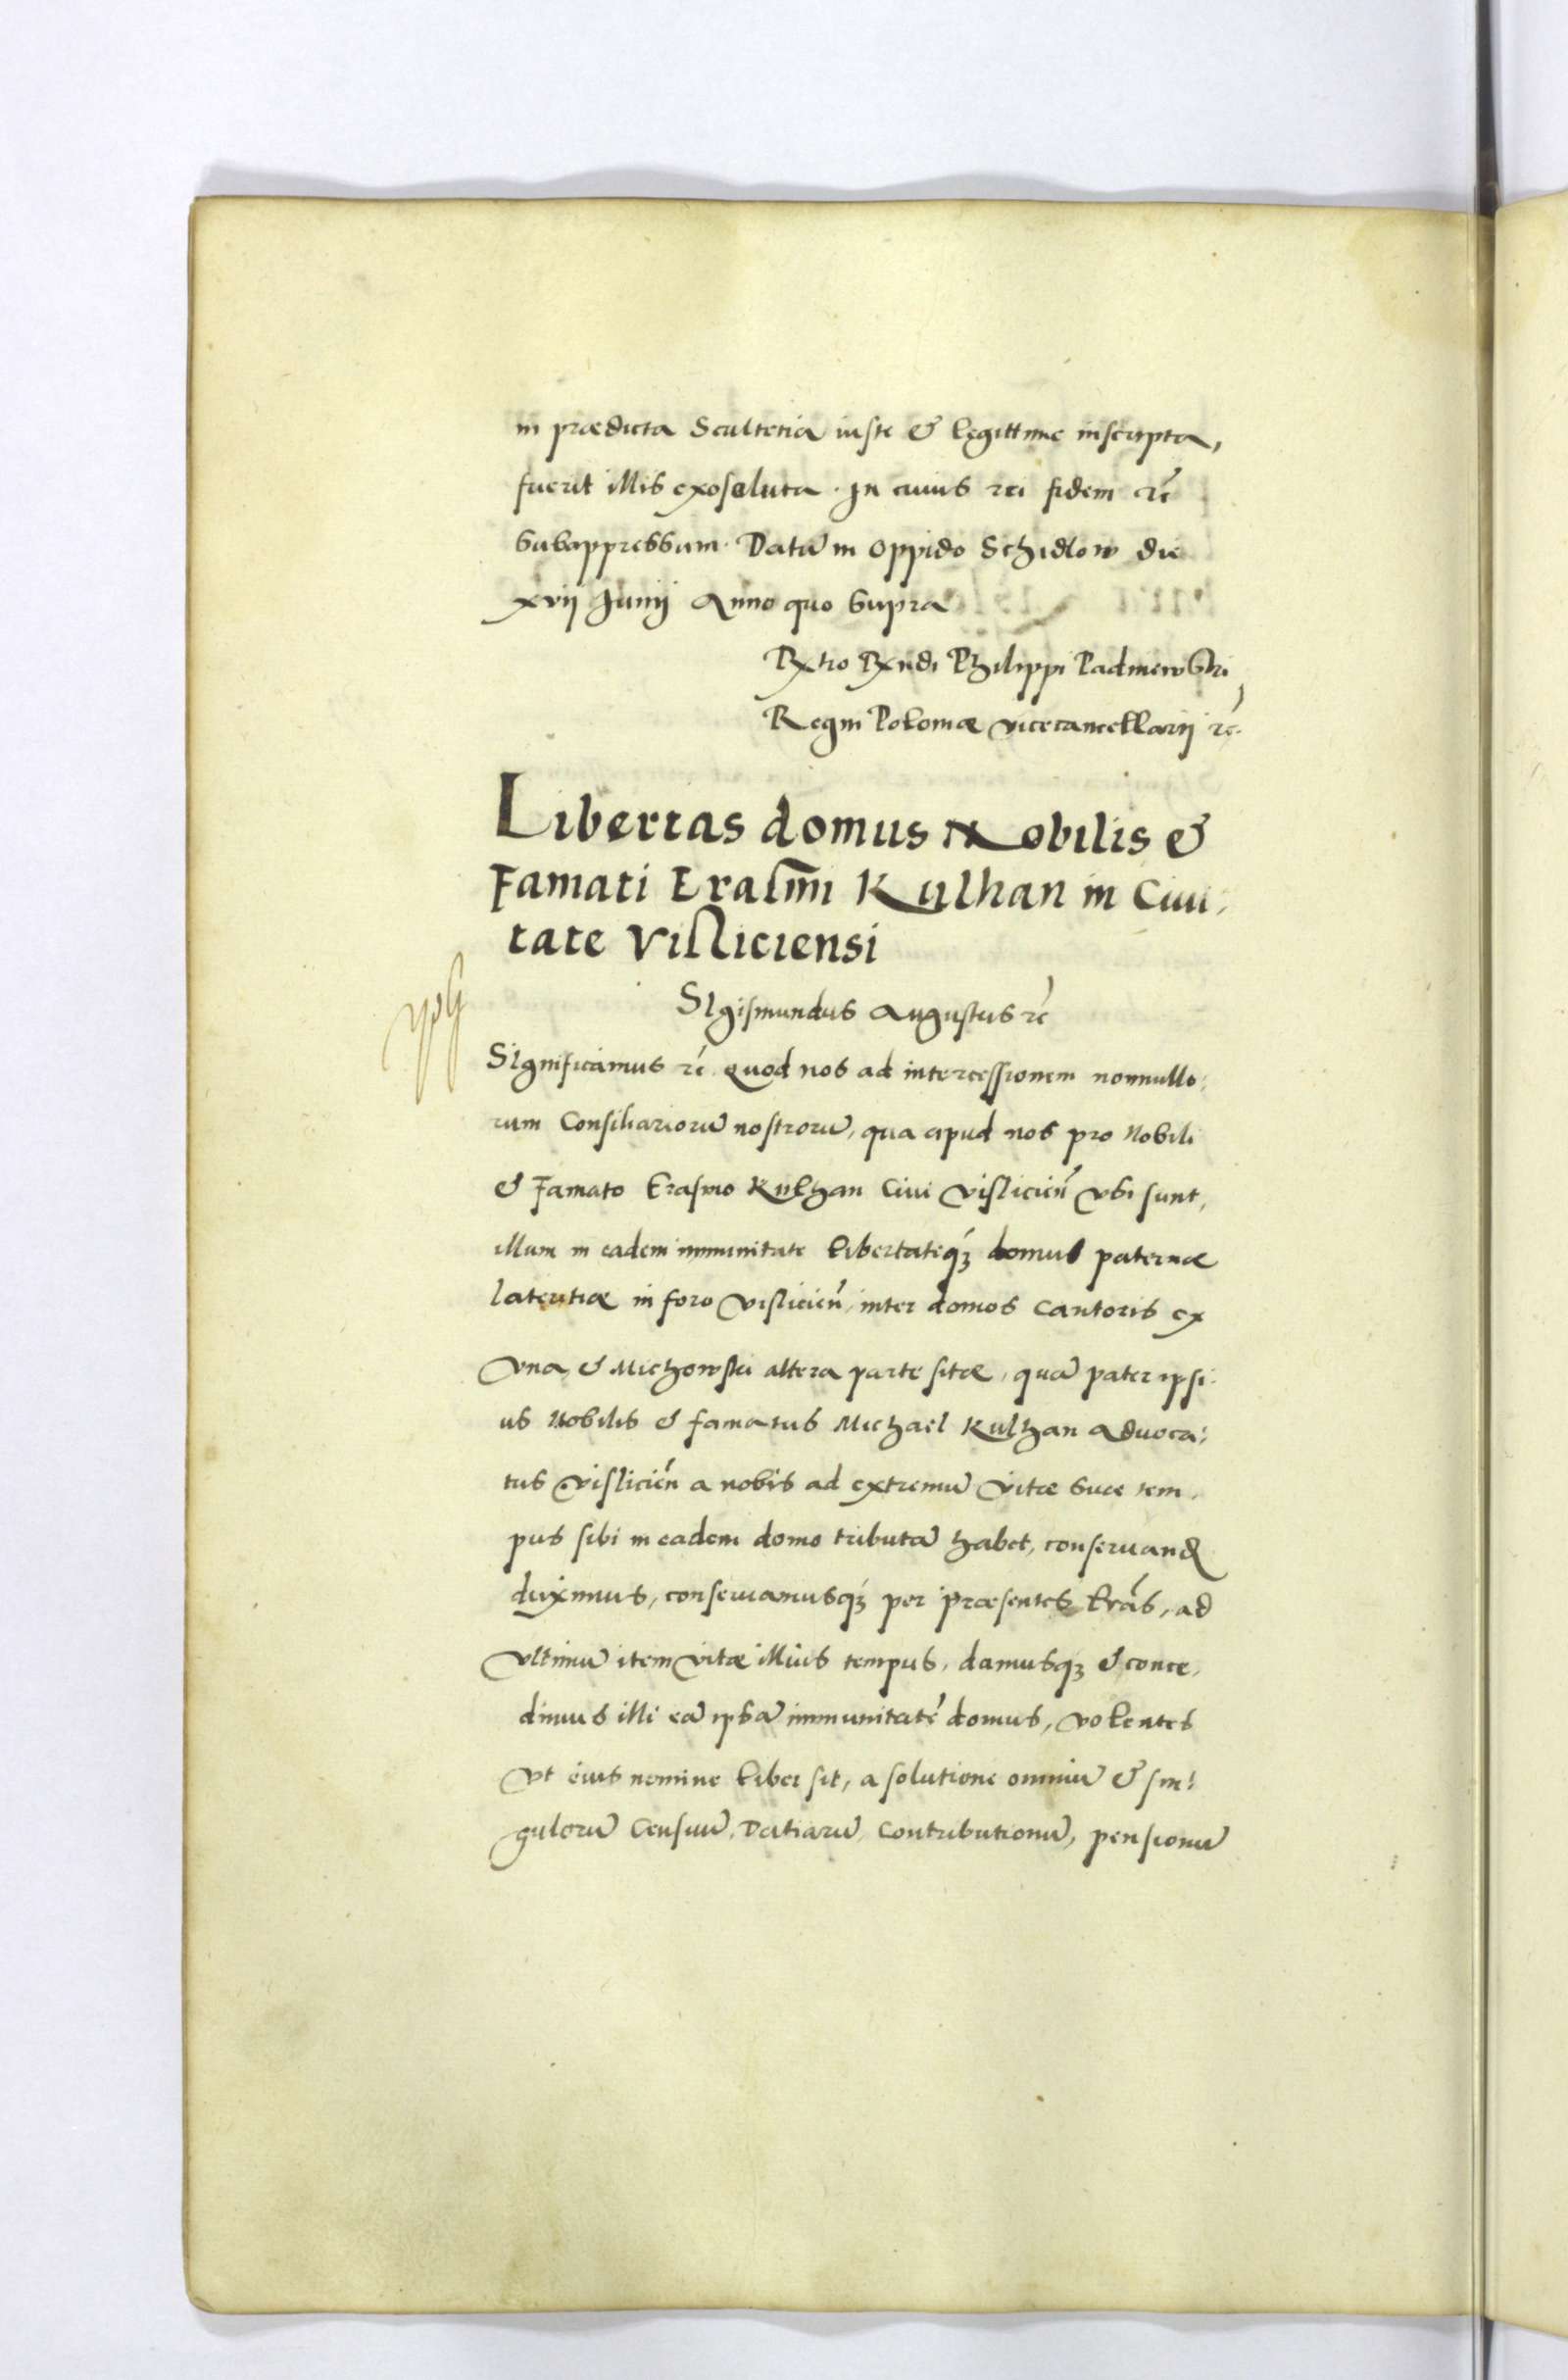 in prædicta Scultetia iuste & legittime inscripta,
fuerit illis exosoluta. In cuius rei fidem rc̃
subappressum. Datū in oppido Schidlow die
xvij Junij Anno quo supra
Rxtio Rxndi Philippi Padniewski
Regni Poloniæ vicecancellarij rc̃.
Libertas domus Nobilis &
Famati Erasm̄i Kulhan in Ciui,
tate Visliciensi
SIgismundus Augustus rc̃
SIgnificamus rc̃ quod nos ad intercessionem nonnullo,
rum Consiliariorū nostrorū, qua apud nos pro Nobili
& Famato Erasmo Kulhan Ciui Vislicień vsi sunt,
illum in eadem immunitate libertateq́ꝫ domus paternæ
lateritiæ in foro Vislicień, inter domos Cantoris ex
Vna & Michowski altera parte sitæ, quā pater ipsi,
us Nobilis & famatus Michael Kulhan Aduoca,
tus Vislicień a nobis ad extremū Vitæ suæ tem,
pus sibi in eadem domo tributā habet, conseruand̨
duximus, conseruamusq́ꝫ per præsentes lr̃as, ad
vltimū item vitæ illius tempus, damusqꝫ & conce,
dimus illi eā ipsā immunitatē domus, volentes
Vt eius nomine liber sit, a solutione omniū & sin,
gulorū Censuū, Datiarū, Contributionū, pensionū